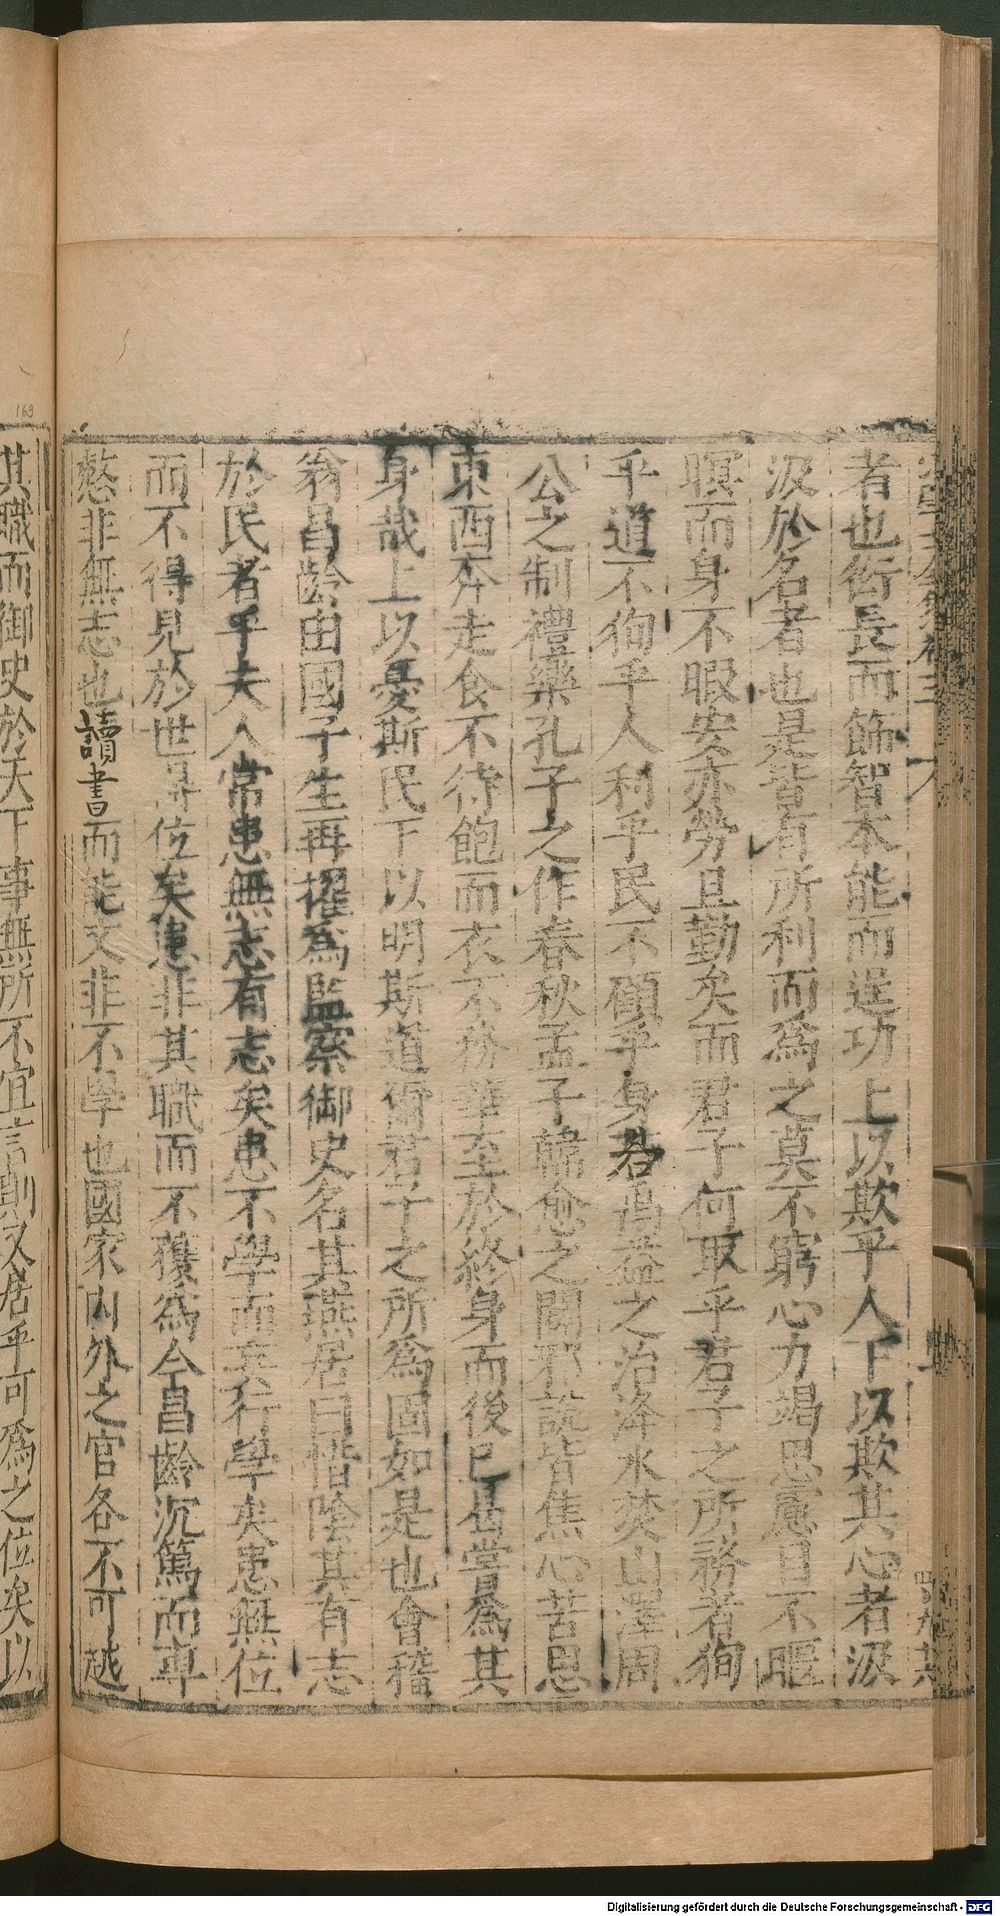 者也衒長而飾智本能而逞功上以欺乎人下以欺其心者汲
汲於名者也是皆有所利而爲之莫不窮心力竭思慮目不暇
暝而身不暇安亦勞且勤矣而君子何取乎君子之所務者狥
乎道不狥乎人利乎民不顧乎身若禹益之治洚水焚山澤周
公之制禮樂孔子之作春秋孟子韓愈之闢邪說皆焦心苦思
東西奔走食不待飽而衣不務華至於終身而後已曷嘗爲其
身哉上以憂斯民下以明斯道衛君子之所爲固如是也會稽
翁昌齡由國子生再擢爲監察御史名其燕居曰惜陰其有志
於民者乎夫人常患無志有志矣患不學而其行學矣患無位
而不得見於世得位矣患非其職而不獲爲今昌齡沉篤而專
慤非無志也讀書而能文非不學也國家內外之官各不可越
其職而御史於天下事無所不宜言則又居乎可爲之位矣以
169
Digitalisierung gefördert durch die Deutsche Forschungsgemeinschaft - DFG